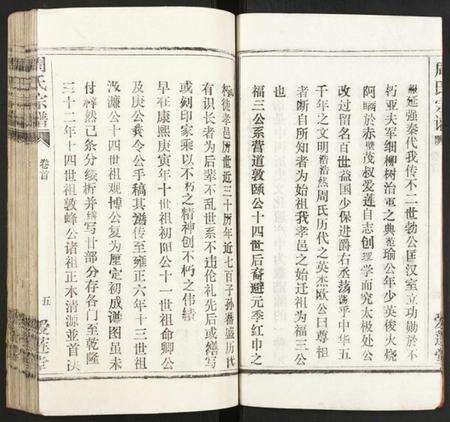 周氏宗谱
嬴强秦代我传不二世勃公匡汉室立功勋於不
朽亚夫军细柳树治军之典瑜公年少英俊火烧
阿瞒於赤壁茂叔爱莲自志创理学而究太极处公
改过留名百世益国少保进爵右丞荡荡乎中华五
千年之文明浩浩然周氏历代之英杰欧公曰尊祖
者断自所知者为始祖我孝邑之始迁祖为福三公
也
福三公系营道敦颐公十四世后裔避元季红巾之
徙孝邑所世近三十历年近七百子孙蕃盛历代
有识长者为后辈不乱世系不违伦礼先后或缮写
或刻印家乘以不朽之精神创不朽之伟绩
早在康熙庚寅年十世祖初阳公十一世祖命卿公
及庚公我令公手稿其谱传至雍正六年十三世祖
汝濂公十四世祖观博公复为厘定初成谱图虽未
付梓然已条分缕析并缮写廿部分存各门至乾隆
三十二年十四世祖敦峰公诸祖正本清源并首次
周氏宗谱
卷首
五
爱莲堂